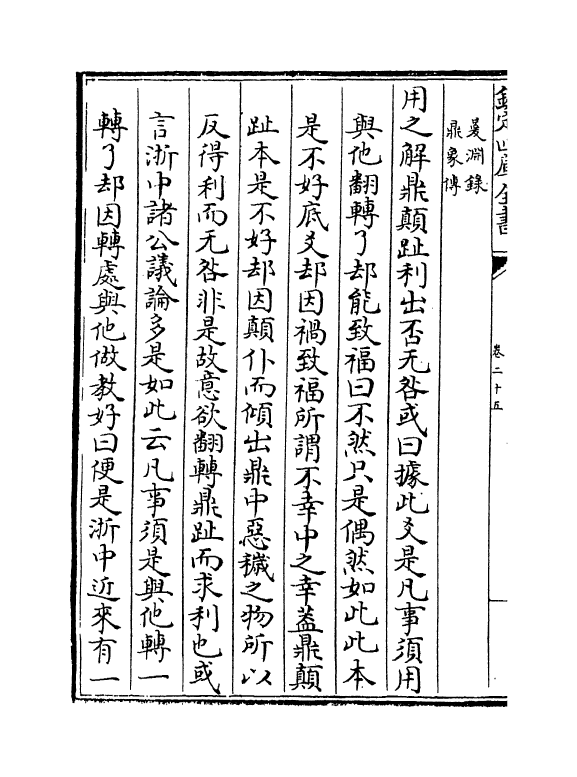 欽定四庫全書
卷二十五
㬊淵錄
鼎象傳
用之解鼎顛趾利出否无咎或曰據此爻是凡事須用
與他翻轉了却能致福曰不然只是偶然如此此本
是不好底爻却因禍致福所謂不幸中之幸蓋鼎顛
趾本是不好却因顛仆而傾出鼎中惡穢之物所以
反得利而无咎非是故意欲翻轉鼎趾而求利也或
言浙中諸公議論多是如此云凡事須是與他轉一
轉了却因轉處與他做教好曰便是浙中近來有一